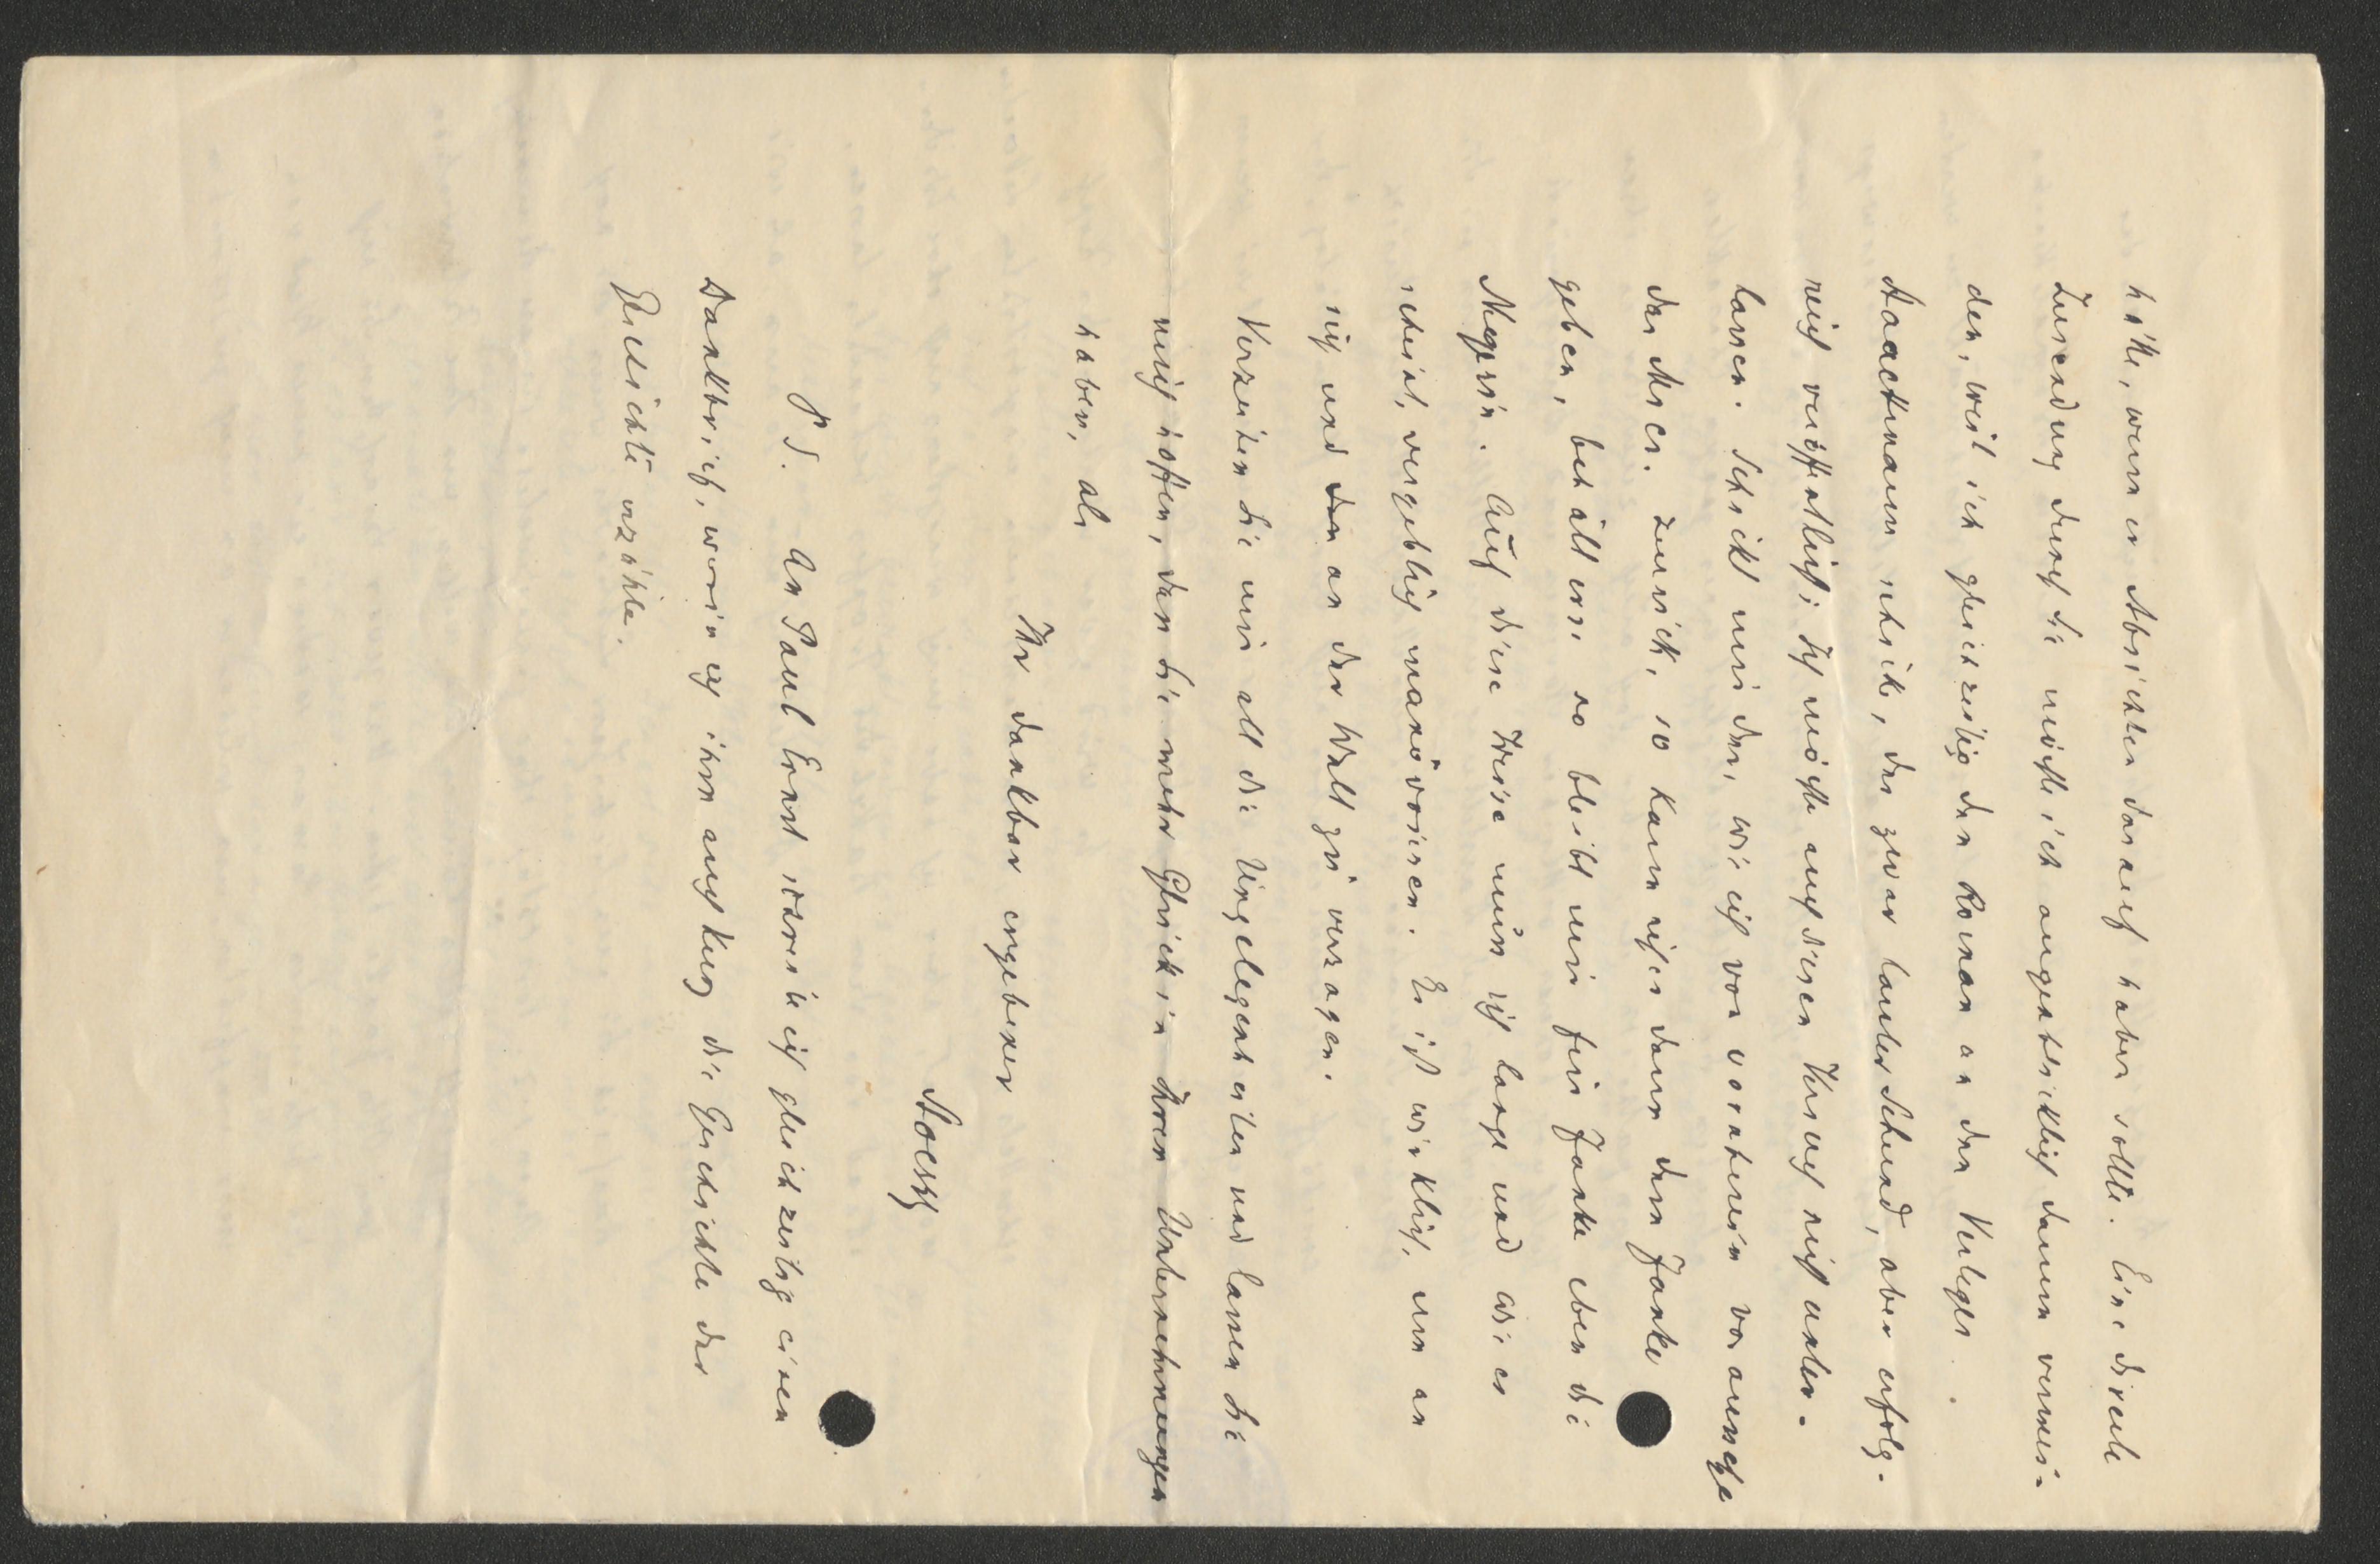 hätte, wenn er Absichten darauf haben sollte. Eine direkte
Zusendung durch Sie möchte ich augenblicklich darum vermei-
den, weil ich gleichzeitig den Roman an den Verleger
Staackmann schicke, der zwar lauter Schund, aber erfolg-
reich veröffentlicht; ich möchte auch diesen Versuch nicht unter-
lassen. Schickt mir der, wie ich von vorneherein voraussetze
das Mscr. zurück, so kann ich es dann dem Janke
geben, behält ers, so bleibt mir für Janke eben die
Auf diese Weise muss ich lange und wie es
scheint, vergeblich manövrieren. Es ist wirklich, um an
sich und <s>den</s> an der Welt zu verzagen.
Verzeihen Sie mir all die Ungelegenheiten und lassen Sie
mich hoffen, dass Sie mehr Glück in Ihren Unternehmungen
haben, als
Ihr dankbar ergebener
Stoessl
P.S. An Paul Ernst schreibe ich gleichzeitig einen
Dankbrief, worin ich ihm auch kurz die Geschichte der
Geschichte erzähle.